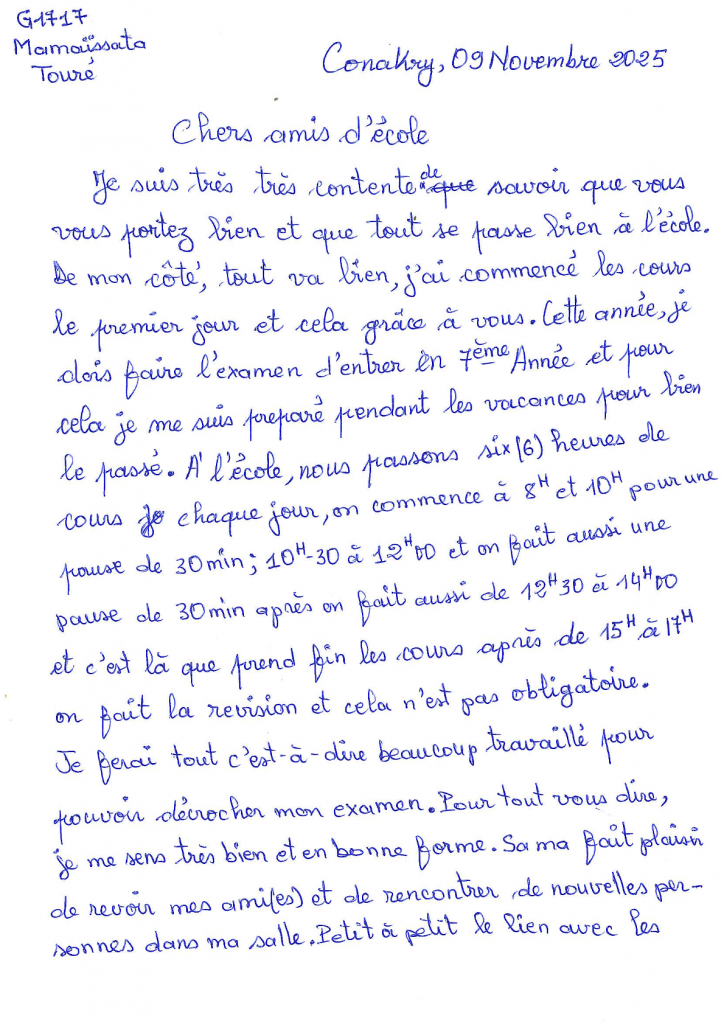 G1717
Mamaïssata
Touré
Conakry, 09 Novembre 2025
Chers amis d'école
Je suis très très contente de que savoir que vous
vous portez bien et que tout se passe bien à l'école.
De mon côté, tout va bien, j'ai commencé les cours
le premier jour et cela grâce à vous. Cette année, je
dois faire l'examen d'entrer en 7ème Année et pour
cela je me suis preparé pendant les vacances pour bien
le passé. A l'école, nous passons six (6) heures de
cours je chaque jour, on commence à 8H et 10H pour une
pause de 30min ; 10H-30 à 12H00 et on fait aussi une
pause de 30min après on fait aussi de 12H30 à 14H00
et c'est là que prend fin les cours après de 15H à 17H
on fait la revision et cela n'est pas obligatoire.
Je ferai tout c'est-à-dire beaucoup travaillé pour
pouvoir décrocher mon examen. Pour tout vous dire,
je me sens très bien et en bonne forme. Sa ma fait plaisir
de revoir mes ami(es) et de rencontrer de nouvelles per-
sonnes dans ma salle. Petit à petit le lien avec les